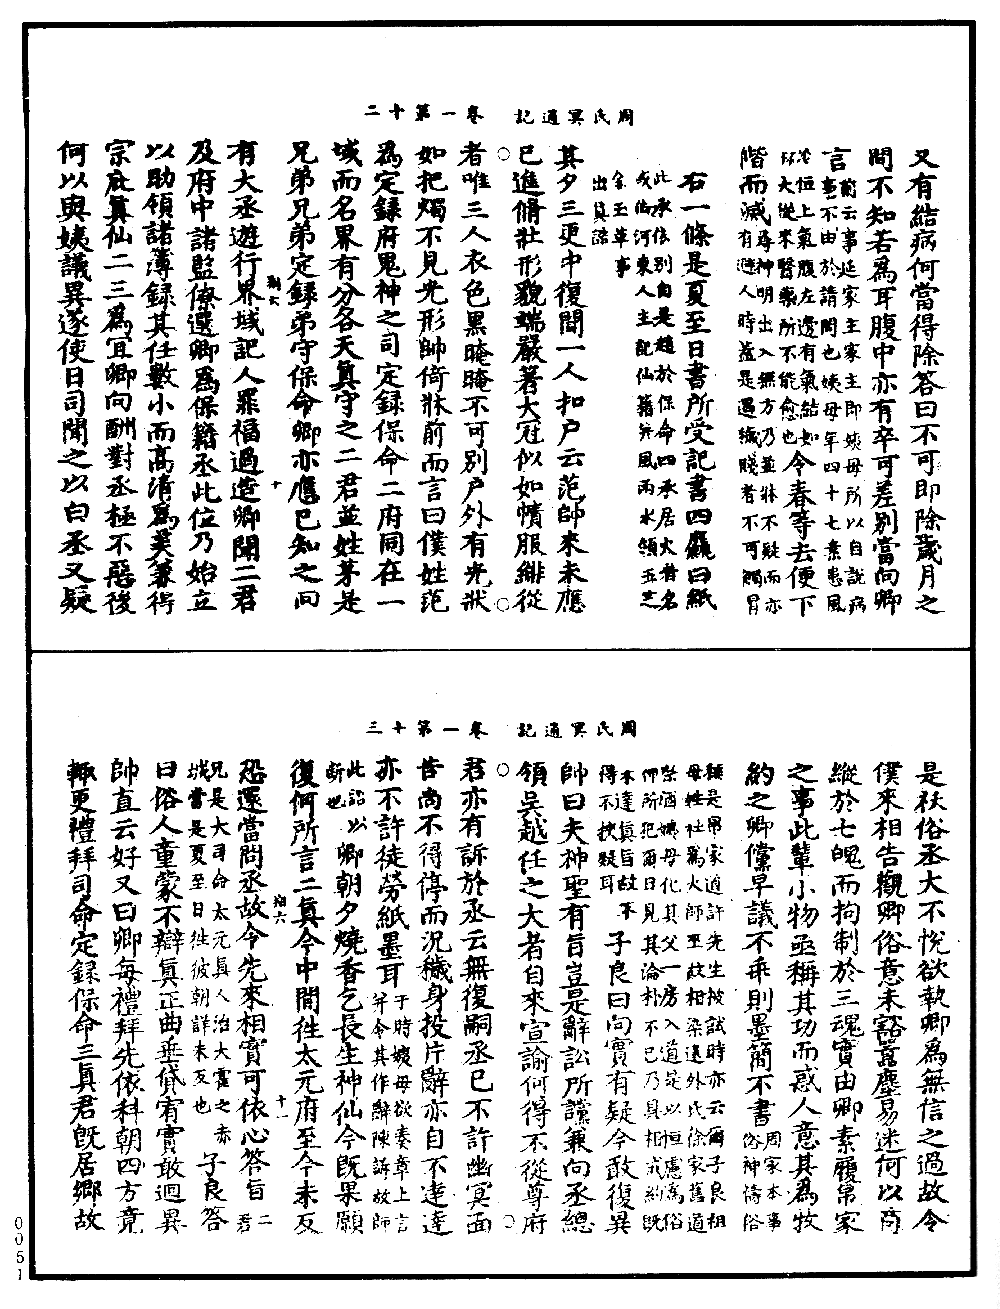 周氏冥通記　卷一第十二
又有結病何當得除答曰不可即除歲月之
間不知若為耳腹中亦有卒可差別當向卿
言前云事延家主家主即姨母所以自說病
事不由於請問也姨母年四十七素患風
冷恒上氣腹左邊有氣結如
杯大從來醫藥所不能愈也今春等去便下
階而滅尋神明出入無方乃並牀不疑而亦
有避人時蓋是遇穢賤者不可觸冒
右一條是夏至日書所受記書四麤白紙
此承依別自是趙於保命四承居火者名
威伯河東人主記仙籍并風雨水領五芝
金玉草事
出真誥
其夕三更中復聞一人扣戶云范帥來未應
○已進脩壯形貌端嚴著大冠似如幘服緋從○
者唯三人衣色黑晻晻不可別戶外有光狀
如把燭不見光形帥倚牀前而言曰僕姓范
為定錄府鬼神之司定錄保命二府同在一
域而名界有分各天真守之二君並姓茅是
兄弟兄弟定錄弟守保命卿亦應已知之向
有大丞遊行界域記人罪福過造卿聞二君
及府中諸監僚選卿為保籍丞此位乃始立
以助領諸簿錄其任數小而高清為美兼得
宗庇真仙二三為宜卿向酬對丞極不惡後
何以與姨議異遂使日司聞之以白丞丞又疑
翔六　十
周氏冥通記　卷一第十三
是袄俗丞大不悅欲執卿為無信之過故令
僕來相告觀卿俗意未豁囂塵易迷何以肯
縱於七魄而拘制於三魂實由卿素履帛家
之事此輩小物亟稱其功而惑人意其為牧
約之卿儻早議不乖則墨簡不書周家本事
俗神禱俗
稱是帛家道許先生被試時亦云爾子良祖
母姓杜為大師巫故相染逮外氏徐家舊道
祭酒姨母化其父一房入道是以恒慮為俗
神所犯爾日見其淪朴不已乃具相戒約既
未達真旨故不
得不挾疑耳子良曰向實有疑今敢復異
帥曰夫神聖有旨豈是辭訟所讜兼向丞總
○領吳越任之大者自來宣諭何得不從尊府○
君亦有訴於丞云無復嗣丞已不許幽冥面
告尚不得停而況穢身投片辭亦自不達達
亦不許徒勞紙墨耳于時姨母欲奏章上言
并令其作辭陳訴故師
此詔以
斷也卿朝夕燒香乞長生神仙今既果願
復何所言二真今中間往太元府至今未反
恐還當問丞故令先來相實可依心答旨二君
兄是大司命太元真人治大霍之赤
城當是夏至日往彼朝詳未反也子良答
曰俗人童蒙不辯真正曲垂貸宥實敢迴異
帥直云好又曰卿每禮拜先依科朝四方竟
輒更禮拜司命定錄保命三真君既居鄉故
翔六　十一
0051